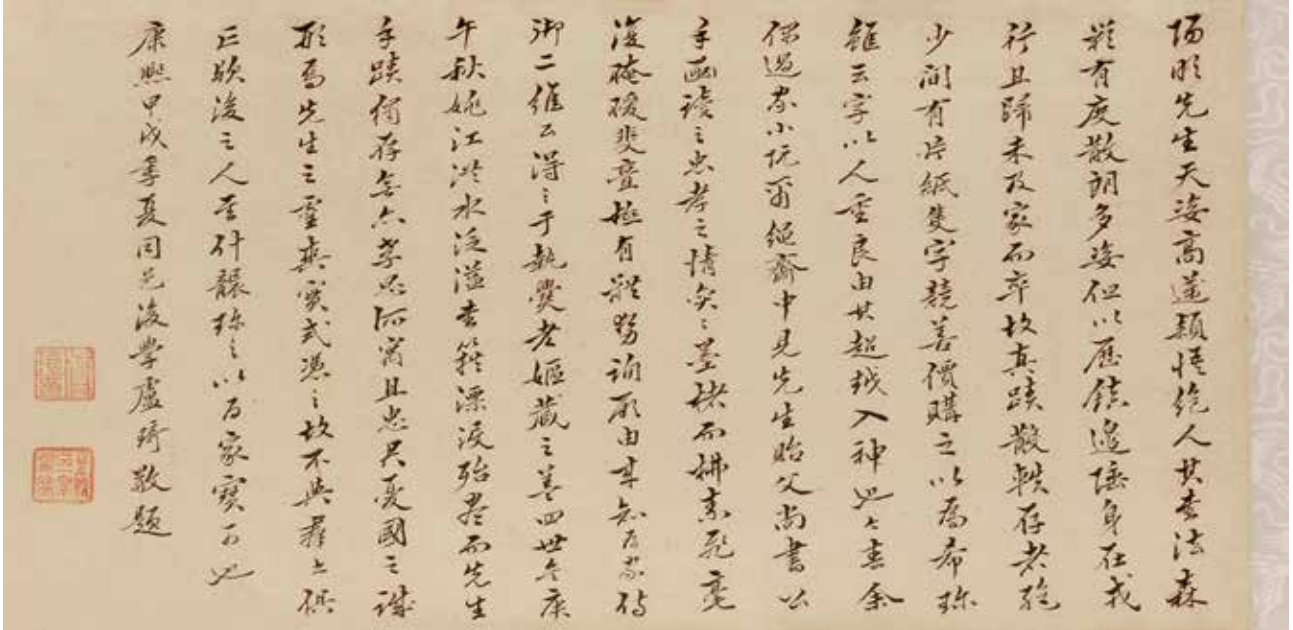 陽明先生天姿高邁穎悟絕人其書法森
嚴有度散朗多姿但以歷鎮邊陲身在戎
行且歸未及家而卒故真蹟散軼存者絕
少間有片紙隻字競善價購之以為希珎
雖云字以人重良由其超越入神也今春余
偶過家小阮爾絕齋中見先生貽父尚書公
手函讀之忠孝之情奕奕墨楮而拂素飛毫
復穠礙斐亹極有體勢詢所由來知為家侍
御二維公得之于執爨老嫗藏之蓋四世今庚
午秋姚江洪水泛溢書籍漂沒殆盡而先生
手蹟獨存無亦孝思所寄且忠君憂國之誠
形焉先生之靈爽實式憑之故不與群書俱
亡歟後之人宜什襲珎之以為家寶可也
康熙甲戌季夏同邑後學盧琦敬題